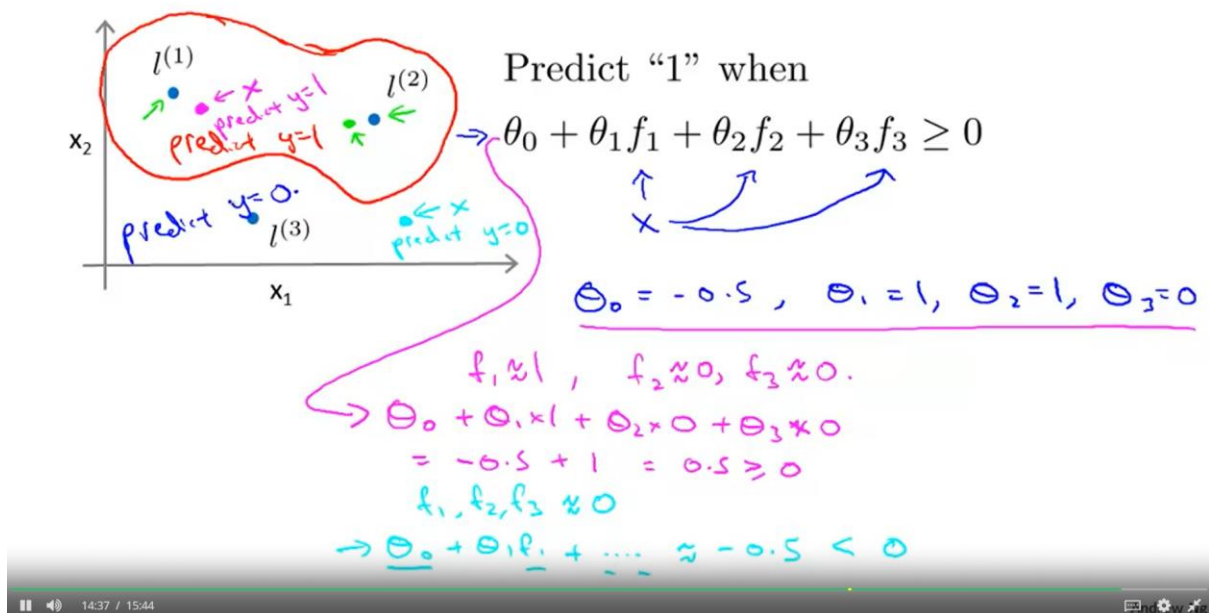 l^(1)
← x
predict y=1
l^(2)
predict y=1
x₂
predict y=0.
l^(3)
← x
predict y=0
x₁
Predict “1” when
θ₀ + θ₁f₁ + θ₂f₂ + θ₃f₃ ≥ 0
x
θ₀ = -0.5, θ₁ = 1, θ₂ = 1, θ₃ = 0
f₁ ≈ 1, f₂ ≈ 0, f₃ ≈ 0.
→ θ₀ + θ₁×1 + θ₂×0 + θ₃×0
= -0.5 + 1 = 0.5 ≥ 0
f₁, f₂, f₃ ≈ 0
→ θ₀ + θ₁f₁ + .... ≈ -0.5 < 0
14:37 / 15:44